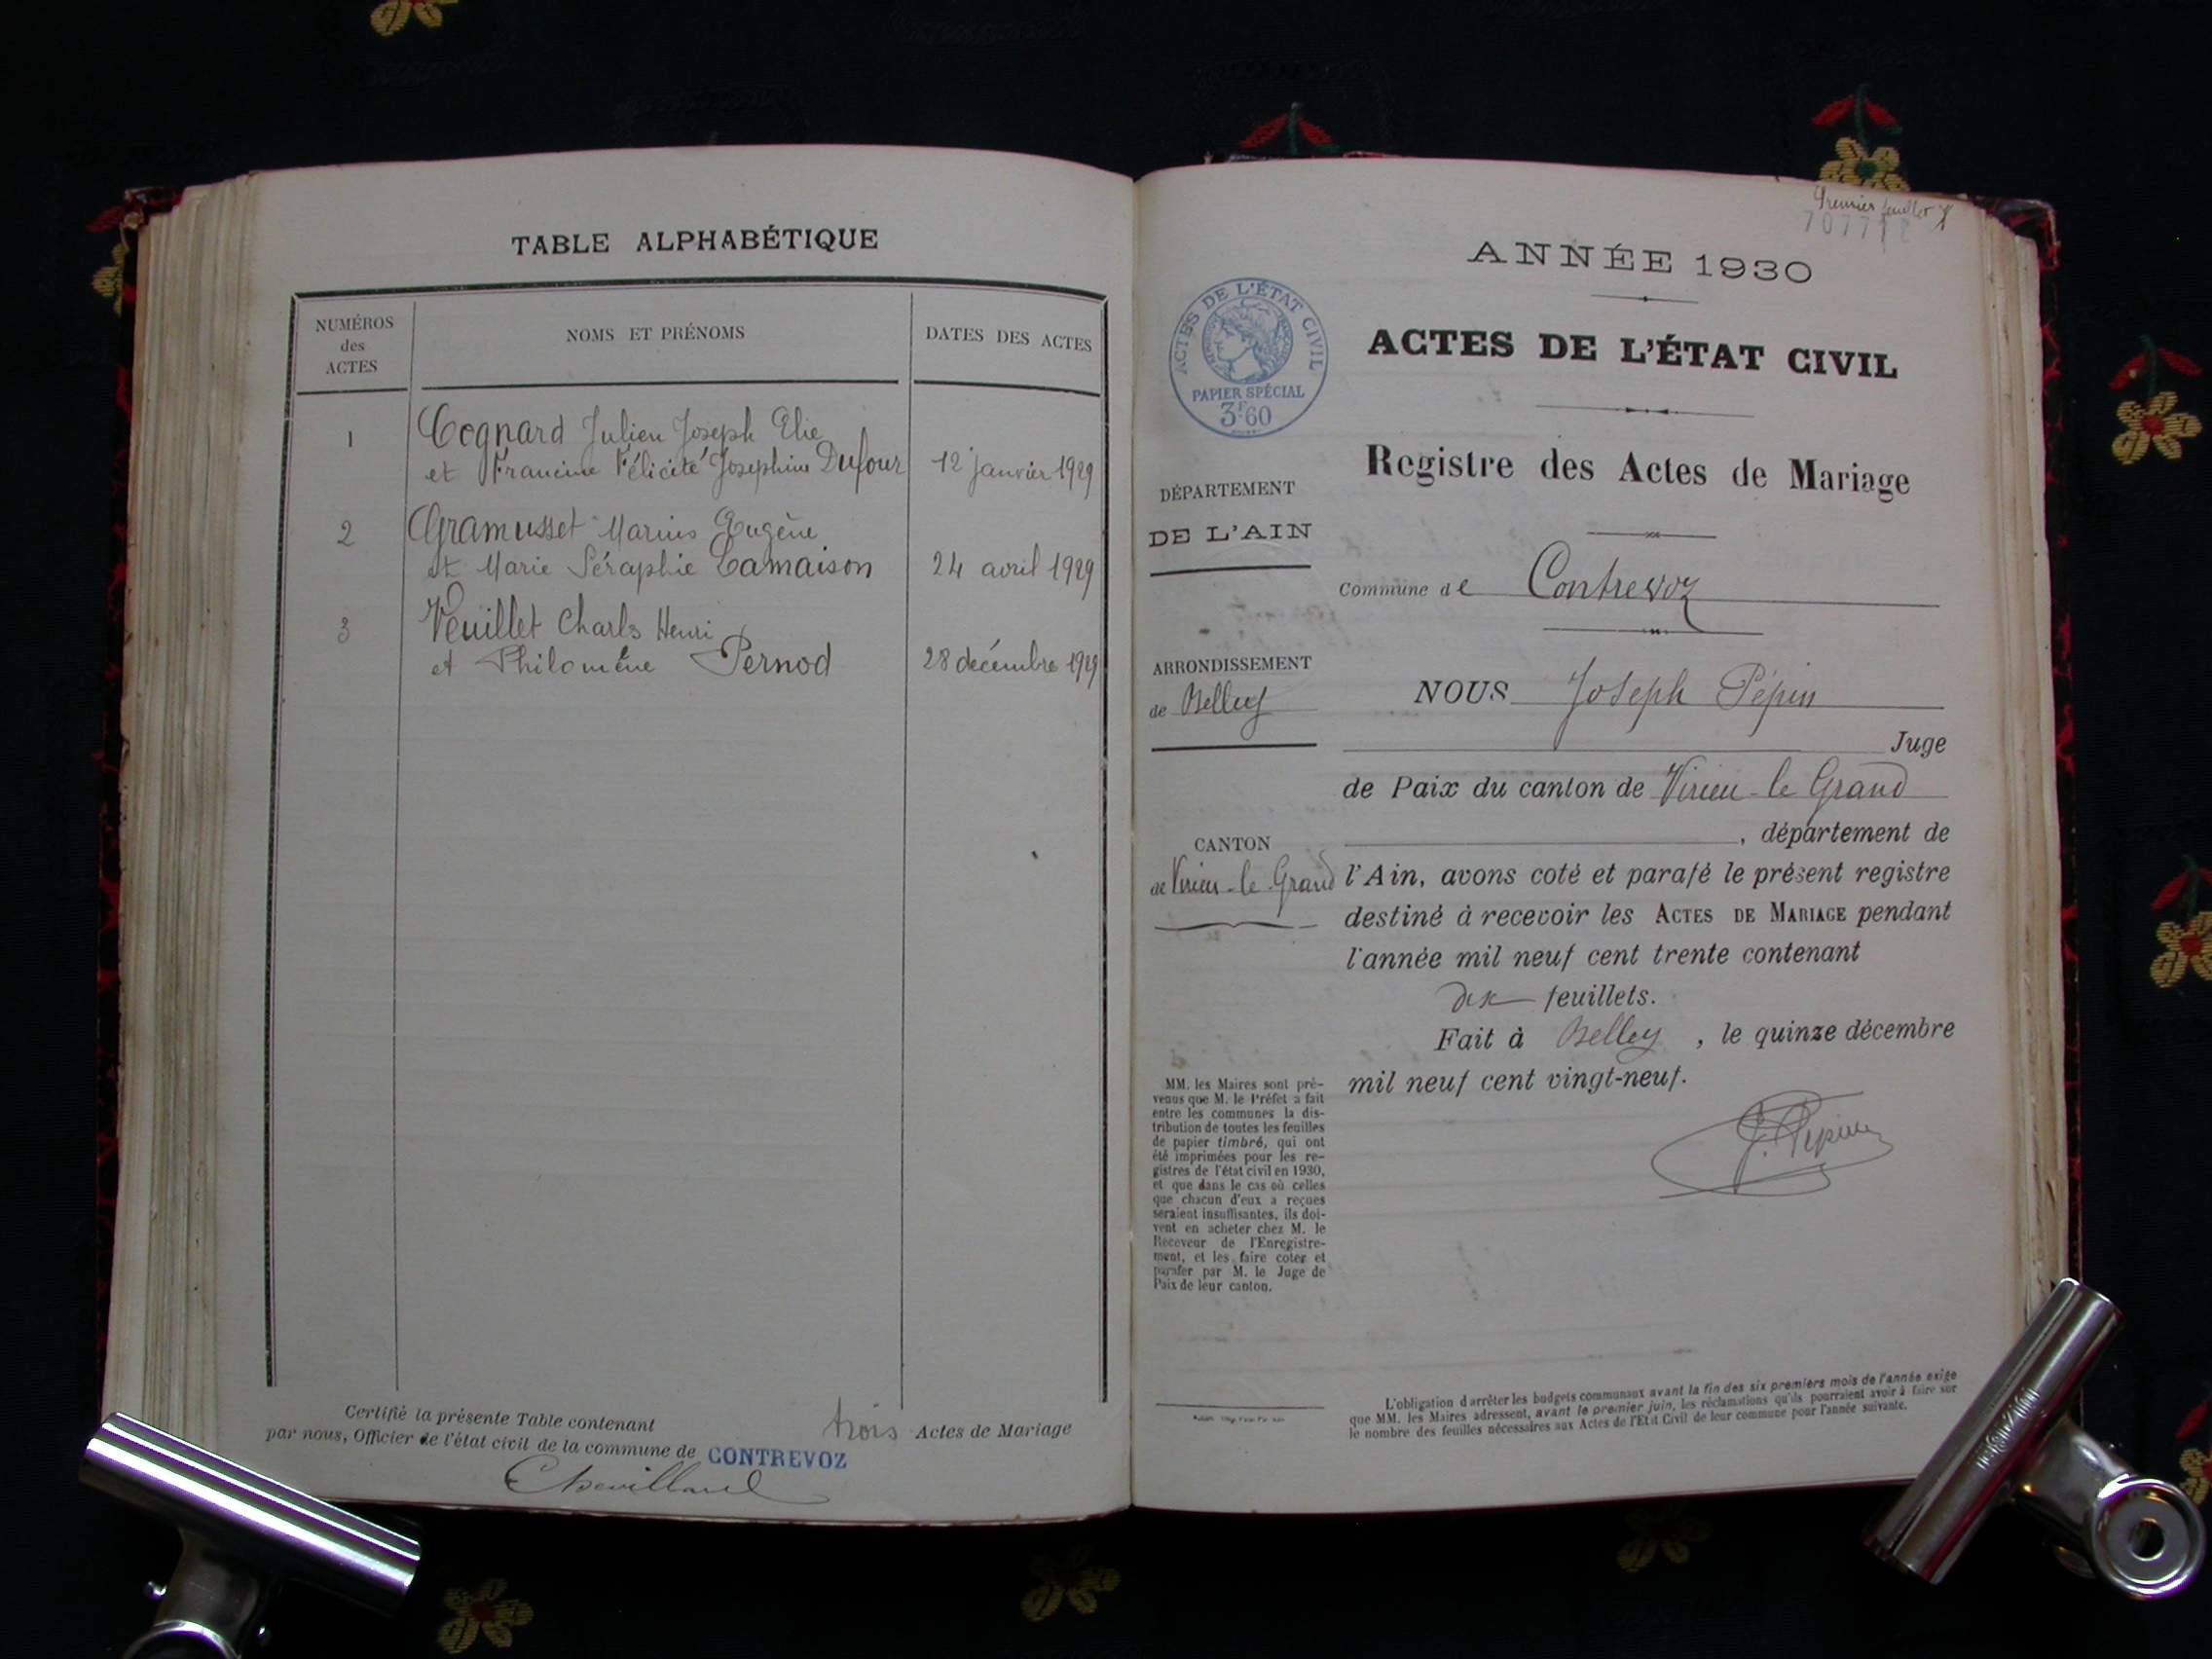 TABLE ALPHABÉTIQUE
NUMÉROS
des
ACTES
NOMS ET PRÉNOMS
DATES DES ACTES
1
Cognard Julien Joseph Elie
et Francine Félicité Josephine Dufour
12 janvier 1929
2
Gramusset Marius Eugène
et Marie Séraphie Lamaison
24 avril 1929
3
Veuillet Charles Henri
et Philomène Pernod
28 decémbre 1929
Certifié la présente Table contenant trois Actes de Mariage
par nous, Officier de l'état civil de la commune de CONTREVOZ
Chevillard
Premier feuillet
ANNÉE 1930
ACTES DE L'ÉTAT CIVIL
PAPIER SPÉCIAL
3F60
ACTES DE L'ÉTAT CIVIL
Registre des Actes de Mariage
DÉPARTEMENT
DE L'AIN
Commune de Contrevoz
ARRONDISSEMENT
de Belley
CANTON
de Virieu-le-Grand
NOUS Joseph Pépin
Juge
de Paix du canton de Virieu-le Grand
, département de
l'Ain, avons coté et parafé le présent registre
destiné à recevoir les ACTES DE MARIAGE pendant
l'année mil neuf cent trente contenant
dix feuillets.
Fait à Belley, le quinze décembre
mil neuf cent vingt-neuf.
J. Pépin
MM. les Maires sont pré-
venus que M. le Préfet a fait
entre les communes la dis-
tribution de toutes les feuilles
de papier timbré, qui ont
été imprimées pour les re-
gistres de l'état civil en 1930,
et que dans le cas où celles
que chacun d'eux a reçues
seraient insuffisantes, ils doi-
vent en acheter chez M. le
Receveur de l'Enregistre-
ment, et les faire coter et
parafer par M. le Juge de
Paix de leur canton.
L'obligation d'arrêter les budgets communaux avant la fin des six premiers mois de l'année exige
que MM. les Maires adressent, avant le premier juin, les réclamations qu'ils pourraient avoir à faire sur
le nombre des feuilles nécessaires aux Actes de l'Etat Civil de leur commune pour l'année suivante.